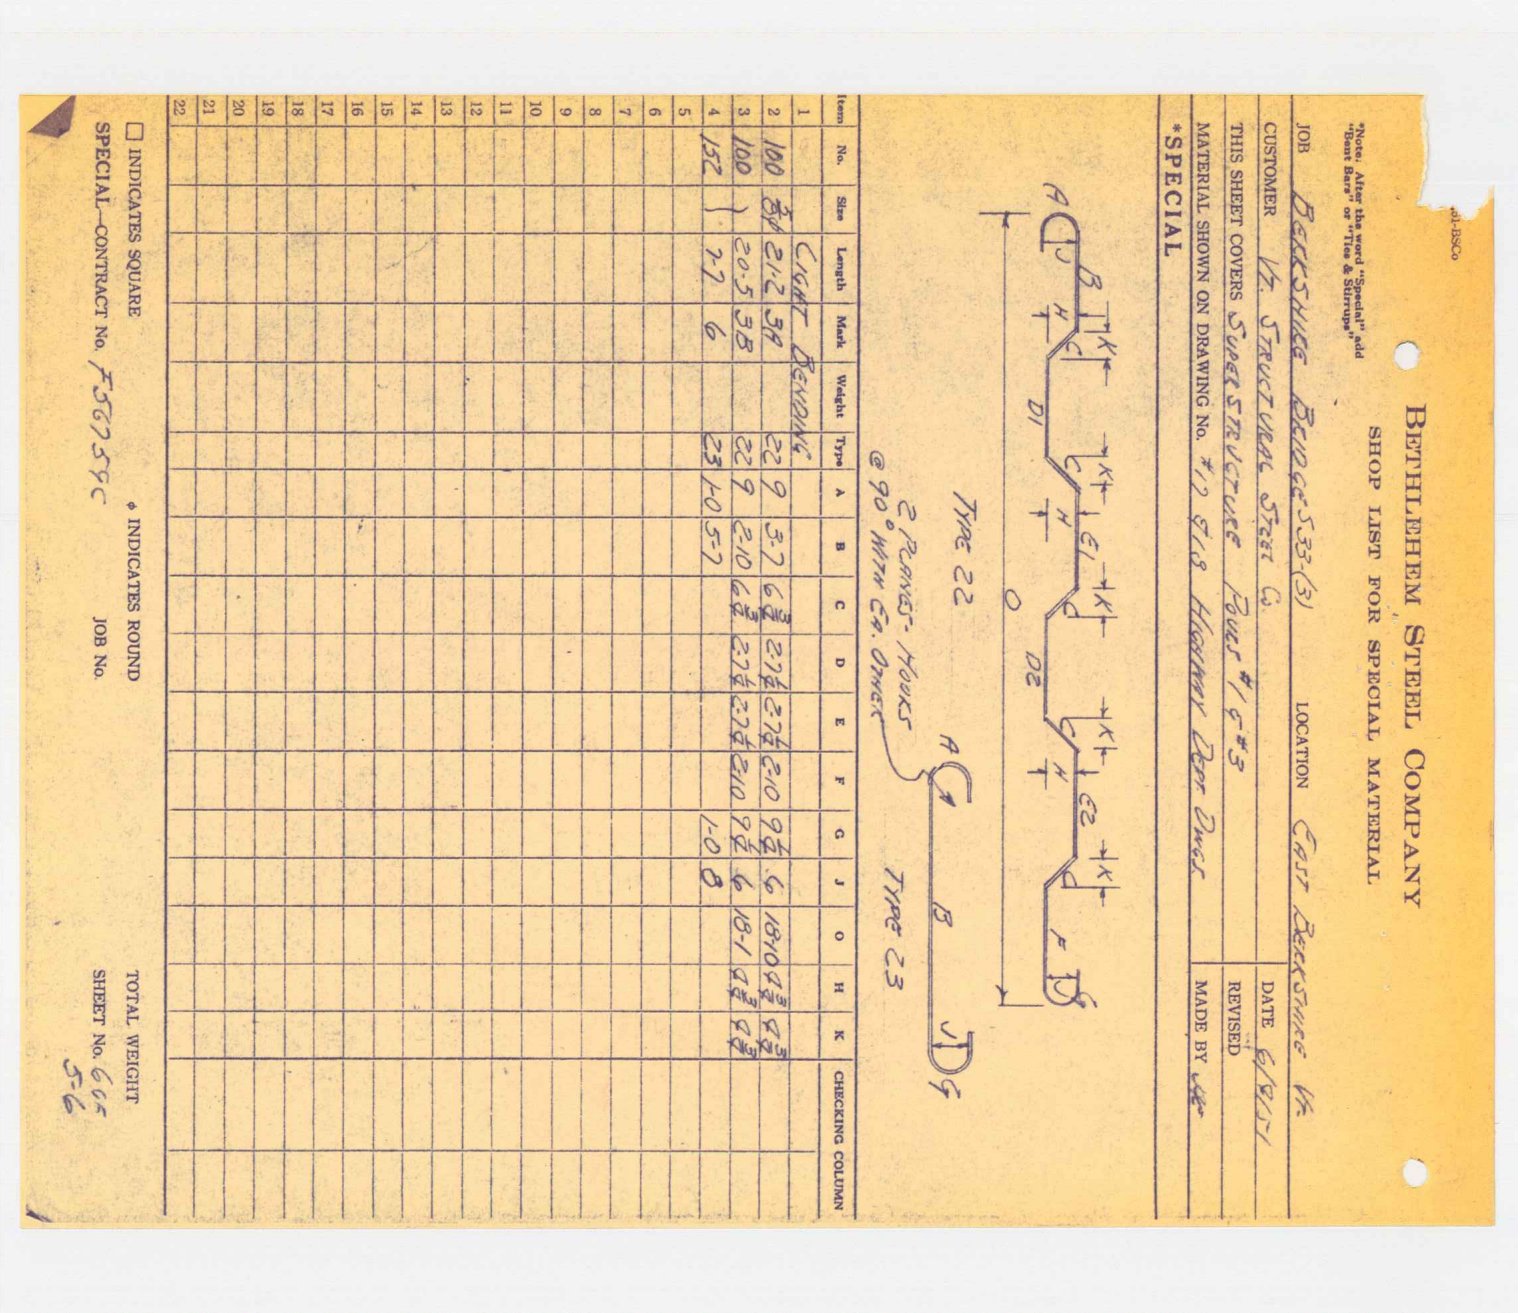 31-BSCo
BETHLEHEM STEEL COMPANY
SHOP LIST FOR SPECIAL MATERIAL
*Note: After the word "Special" add
"Bent Bars" or "Ties & Stirrups"
JOB BERKSHIRE BRIDGE S33-(3) LOCATION EAST BERKSHIRE VT.
CUSTOMER VT. STRUCTURAL STEEL CO. DATE 6/8/51
THIS SHEET COVERS SUPERSTRUCTURE POURS #1 & #3 REVISED
MATERIAL SHOWN ON DRAWING No. #17 & 18 HIGHWAY DEPT DWGS. MADE BY
*SPECIAL
A J B H K C D1 C K H E1 K C D2 C K H E2 K C F J G
O
TYPE 22
2 PLANES - HOOKS
@ 90° WITH EA. OTHER
A B J G
TYPE 23
Item No. Size Length Mark Weight Type A B C D E F G J O H K CHECKING COLUMN
1 LIGHT BENDING
2 100 3/4φ 21-2 3A 22 9 3-7 6 3/4 2-7 1/4 2-7 1/4 2-10 9 1/4 6 18-10 4 3/4 4 3/4
3 100 } 20-5 3B 22 9 2-10 6 3/4 2-7 1/4 2-7 1/4 2-10 9 1/4 6 18-1 4 3/4 4 3/4
4 152 7-7 6 23 1-0 5-7 1-0 8
5
6
7
8
9
10
11
12
13
14
15
16
17
18
19
20
21
22
☐ INDICATES SQUARE φ INDICATES ROUND TOTAL WEIGHT
SPECIAL—CONTRACT No. F56759C JOB No. SHEET No. 66F
5-6